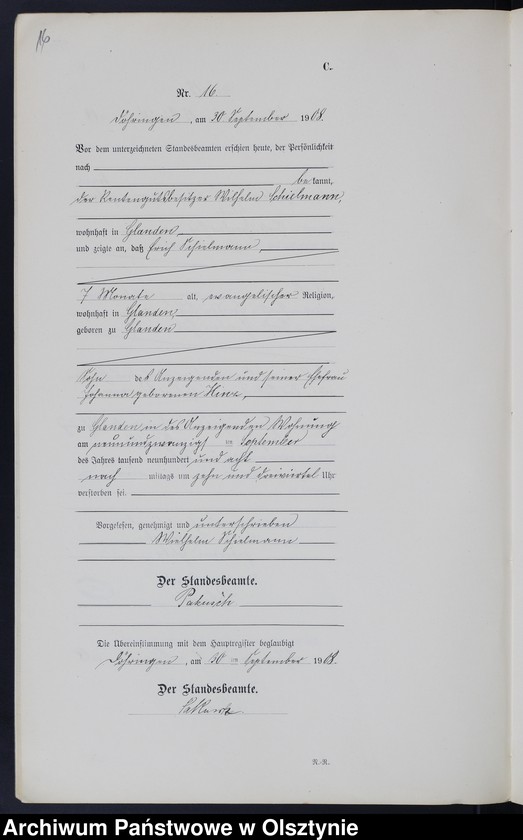 16
C.
Nr. 16.
Döhringen, am 30 September 1908.
Vor dem unterzeichneten Standesbeamten erschien heute, der Persönlichkeit
nach
be kannt,
der Rentengutsbesitzer Wilhelm Schielmann,
wohnhaft in Glanden
und zeigte an, daß Erich Schielmann,
7 Monate alt, evangelischer Religion,
wohnhaft in Glanden,
geboren zu Glanden
Sohn des Anzeigenden und seiner Ehefrau
Johanna geborenen
zu Glanden in des Anzeigenden Wohnung
am neunundzwanzigsten September
des Jahres tausend neunhundert und acht
nach mittags um zehn und dreiviertel Uhr
verstorben sei.
Vorgelesen, genehmigt und unterschrieben
Wielhelm Schielmann
Der Standesbeamte.
Pakusch
Die Übereinstimmung mit dem Hauptregister beglaubigt
Döhringen, am 30 ten September 1908.
Der Standesbeamte.
Pakusch
R.-R.
Archiwum Państwowe w Olsztynie